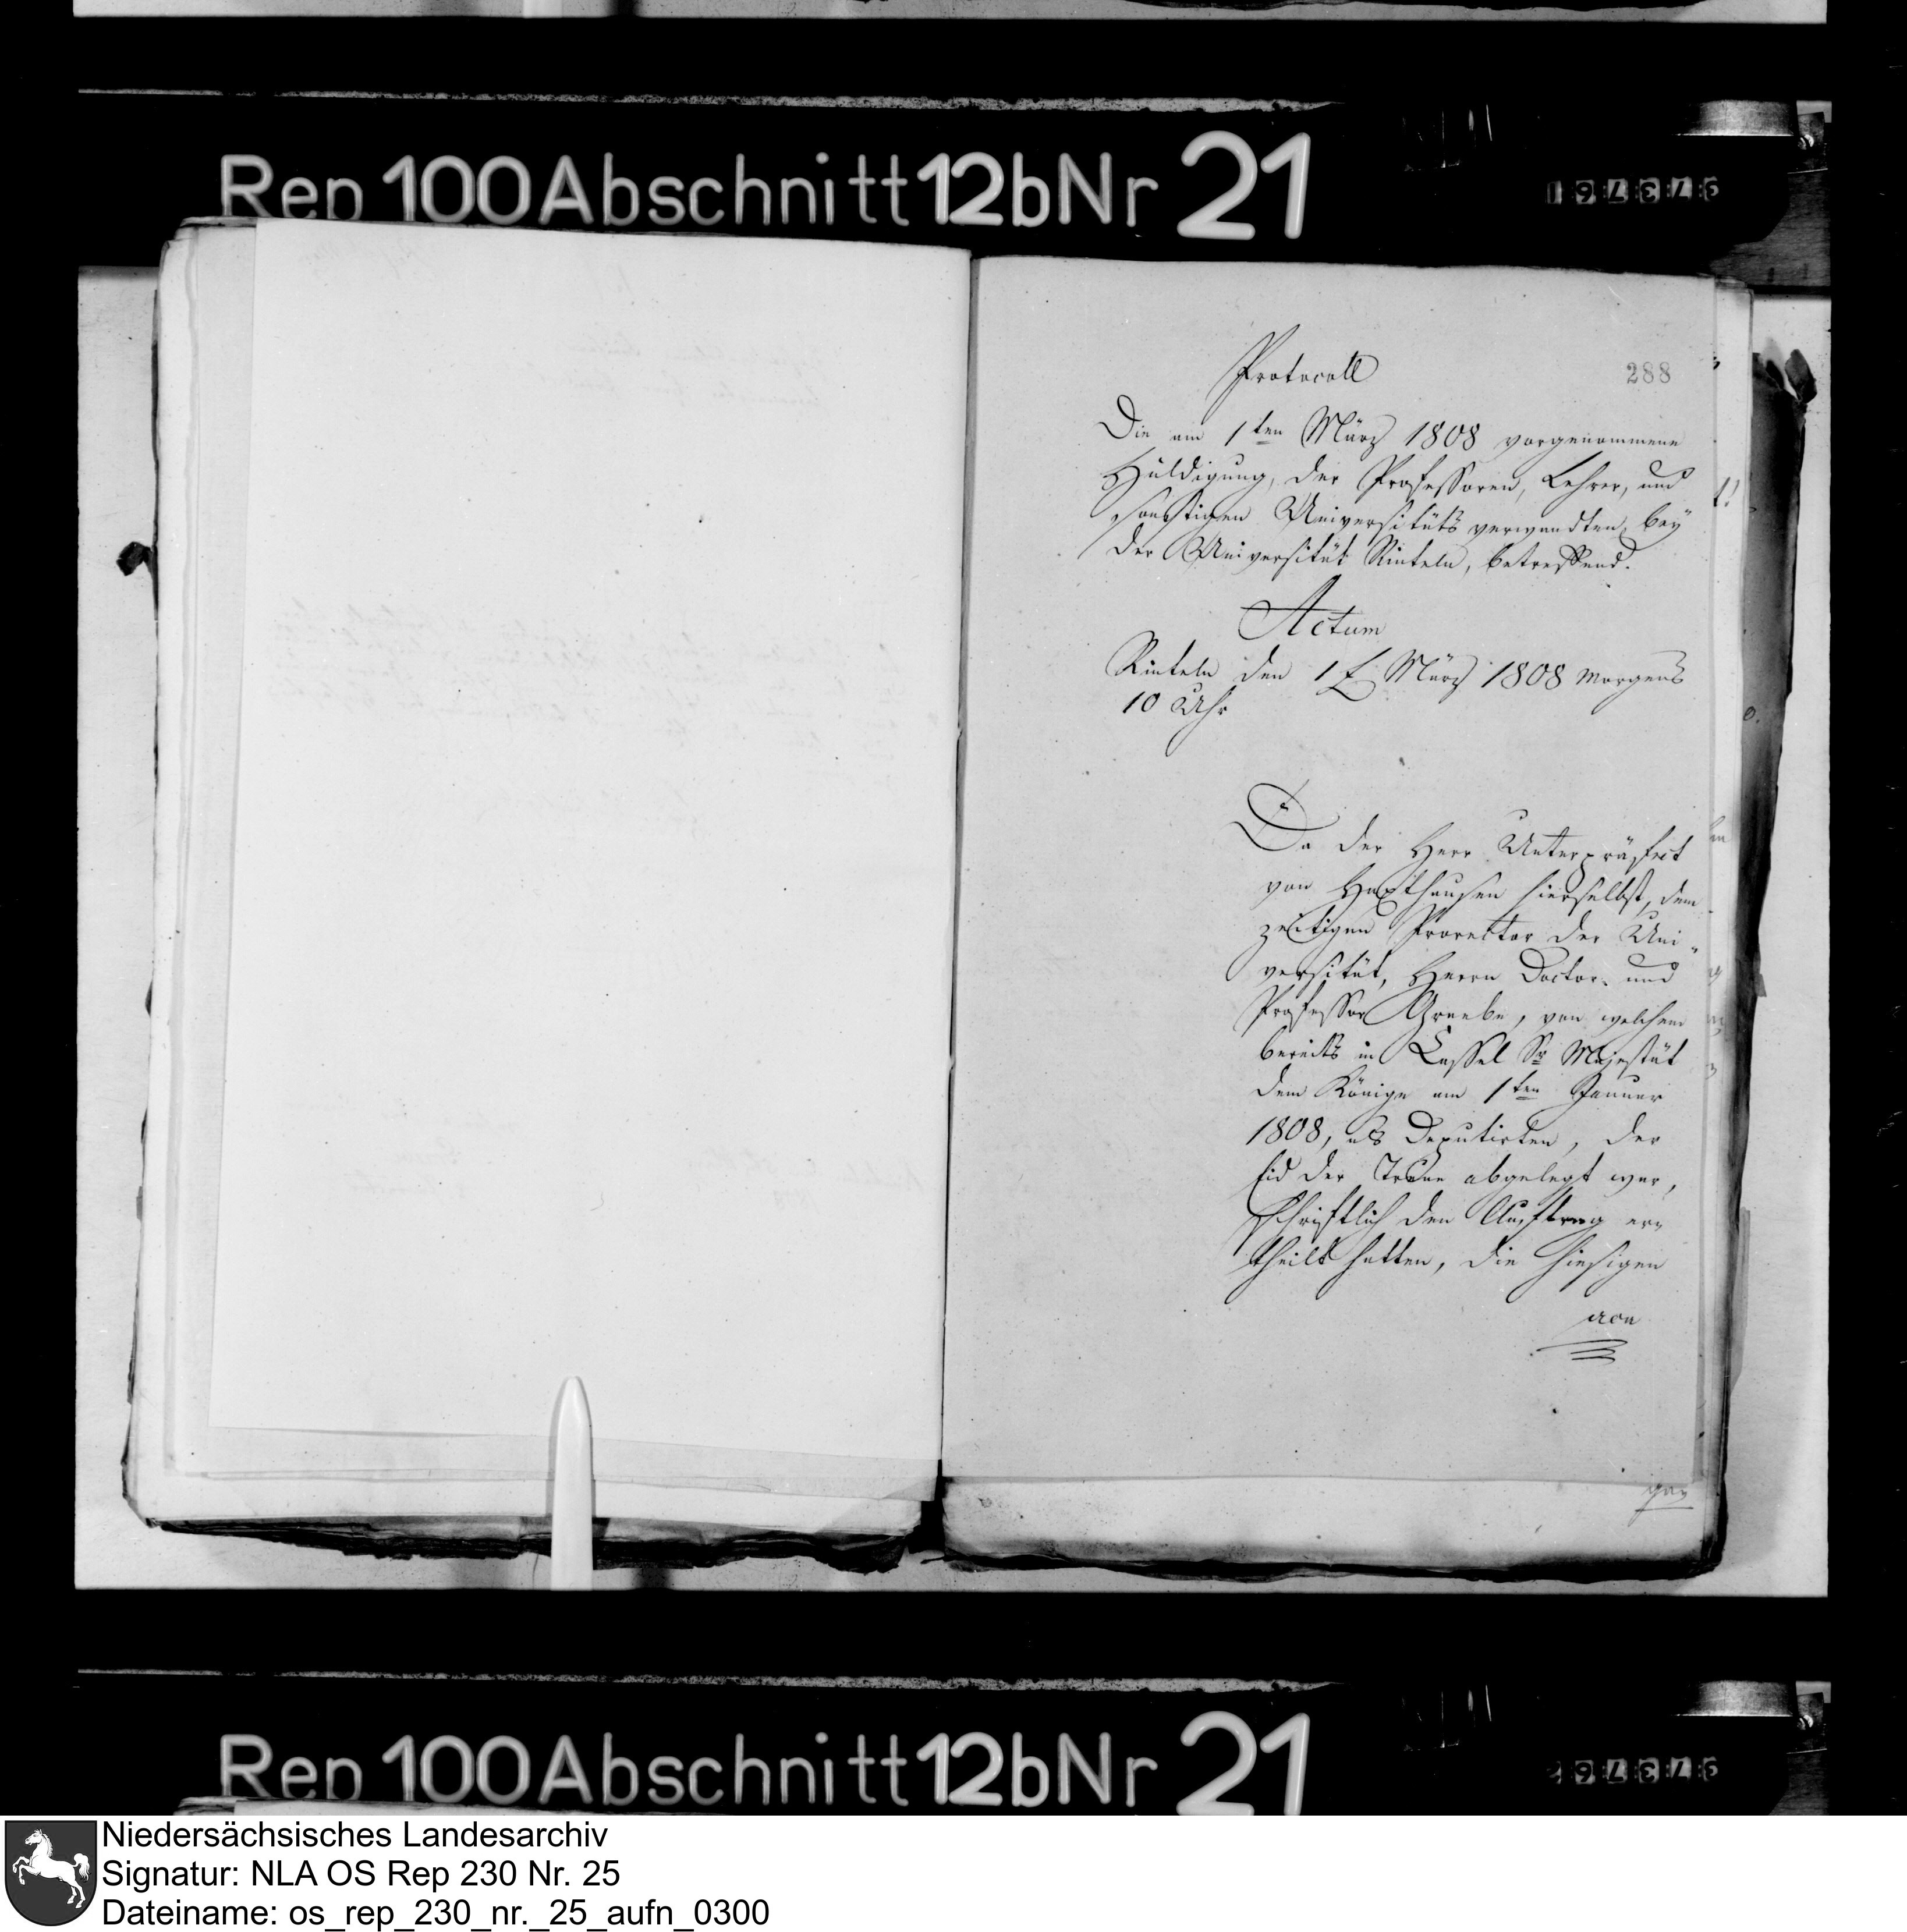 Rep 100 Abschnitt 12b Nr 21
288
Protocoll
Die am 1ten März 1808 vorgenommene
Huldigung, der Professoren, Lehrer, und
sonstigen Universitäts verwandten, bey
der Universität Rinteln, betreffend.
Actum
Rinteln den 1t März 1808 Morgens
10 Uhr
Da der Herr Unterpräfect
von Haxthausen hierselbst, dem
zeitigen Prorector der Uni"
versität, Herrn Doctor und
Professor Graebe, von welchem
bereits in Cassel Sr Majestät
dem Könige am 1ten Januar
1808, als Deputirten, der
Eid der Treue abgelegt war,
schriftlich den Auftrag er=
theilt hatten, die hiesigen
Rep 100 Abschnitt 12b Nr 21
Niedersächsisches Landesarchiv
Signatur: NLA OS Rep 230 Nr. 25
Dateiname: os_rep_230_nr._25_aufn_0300